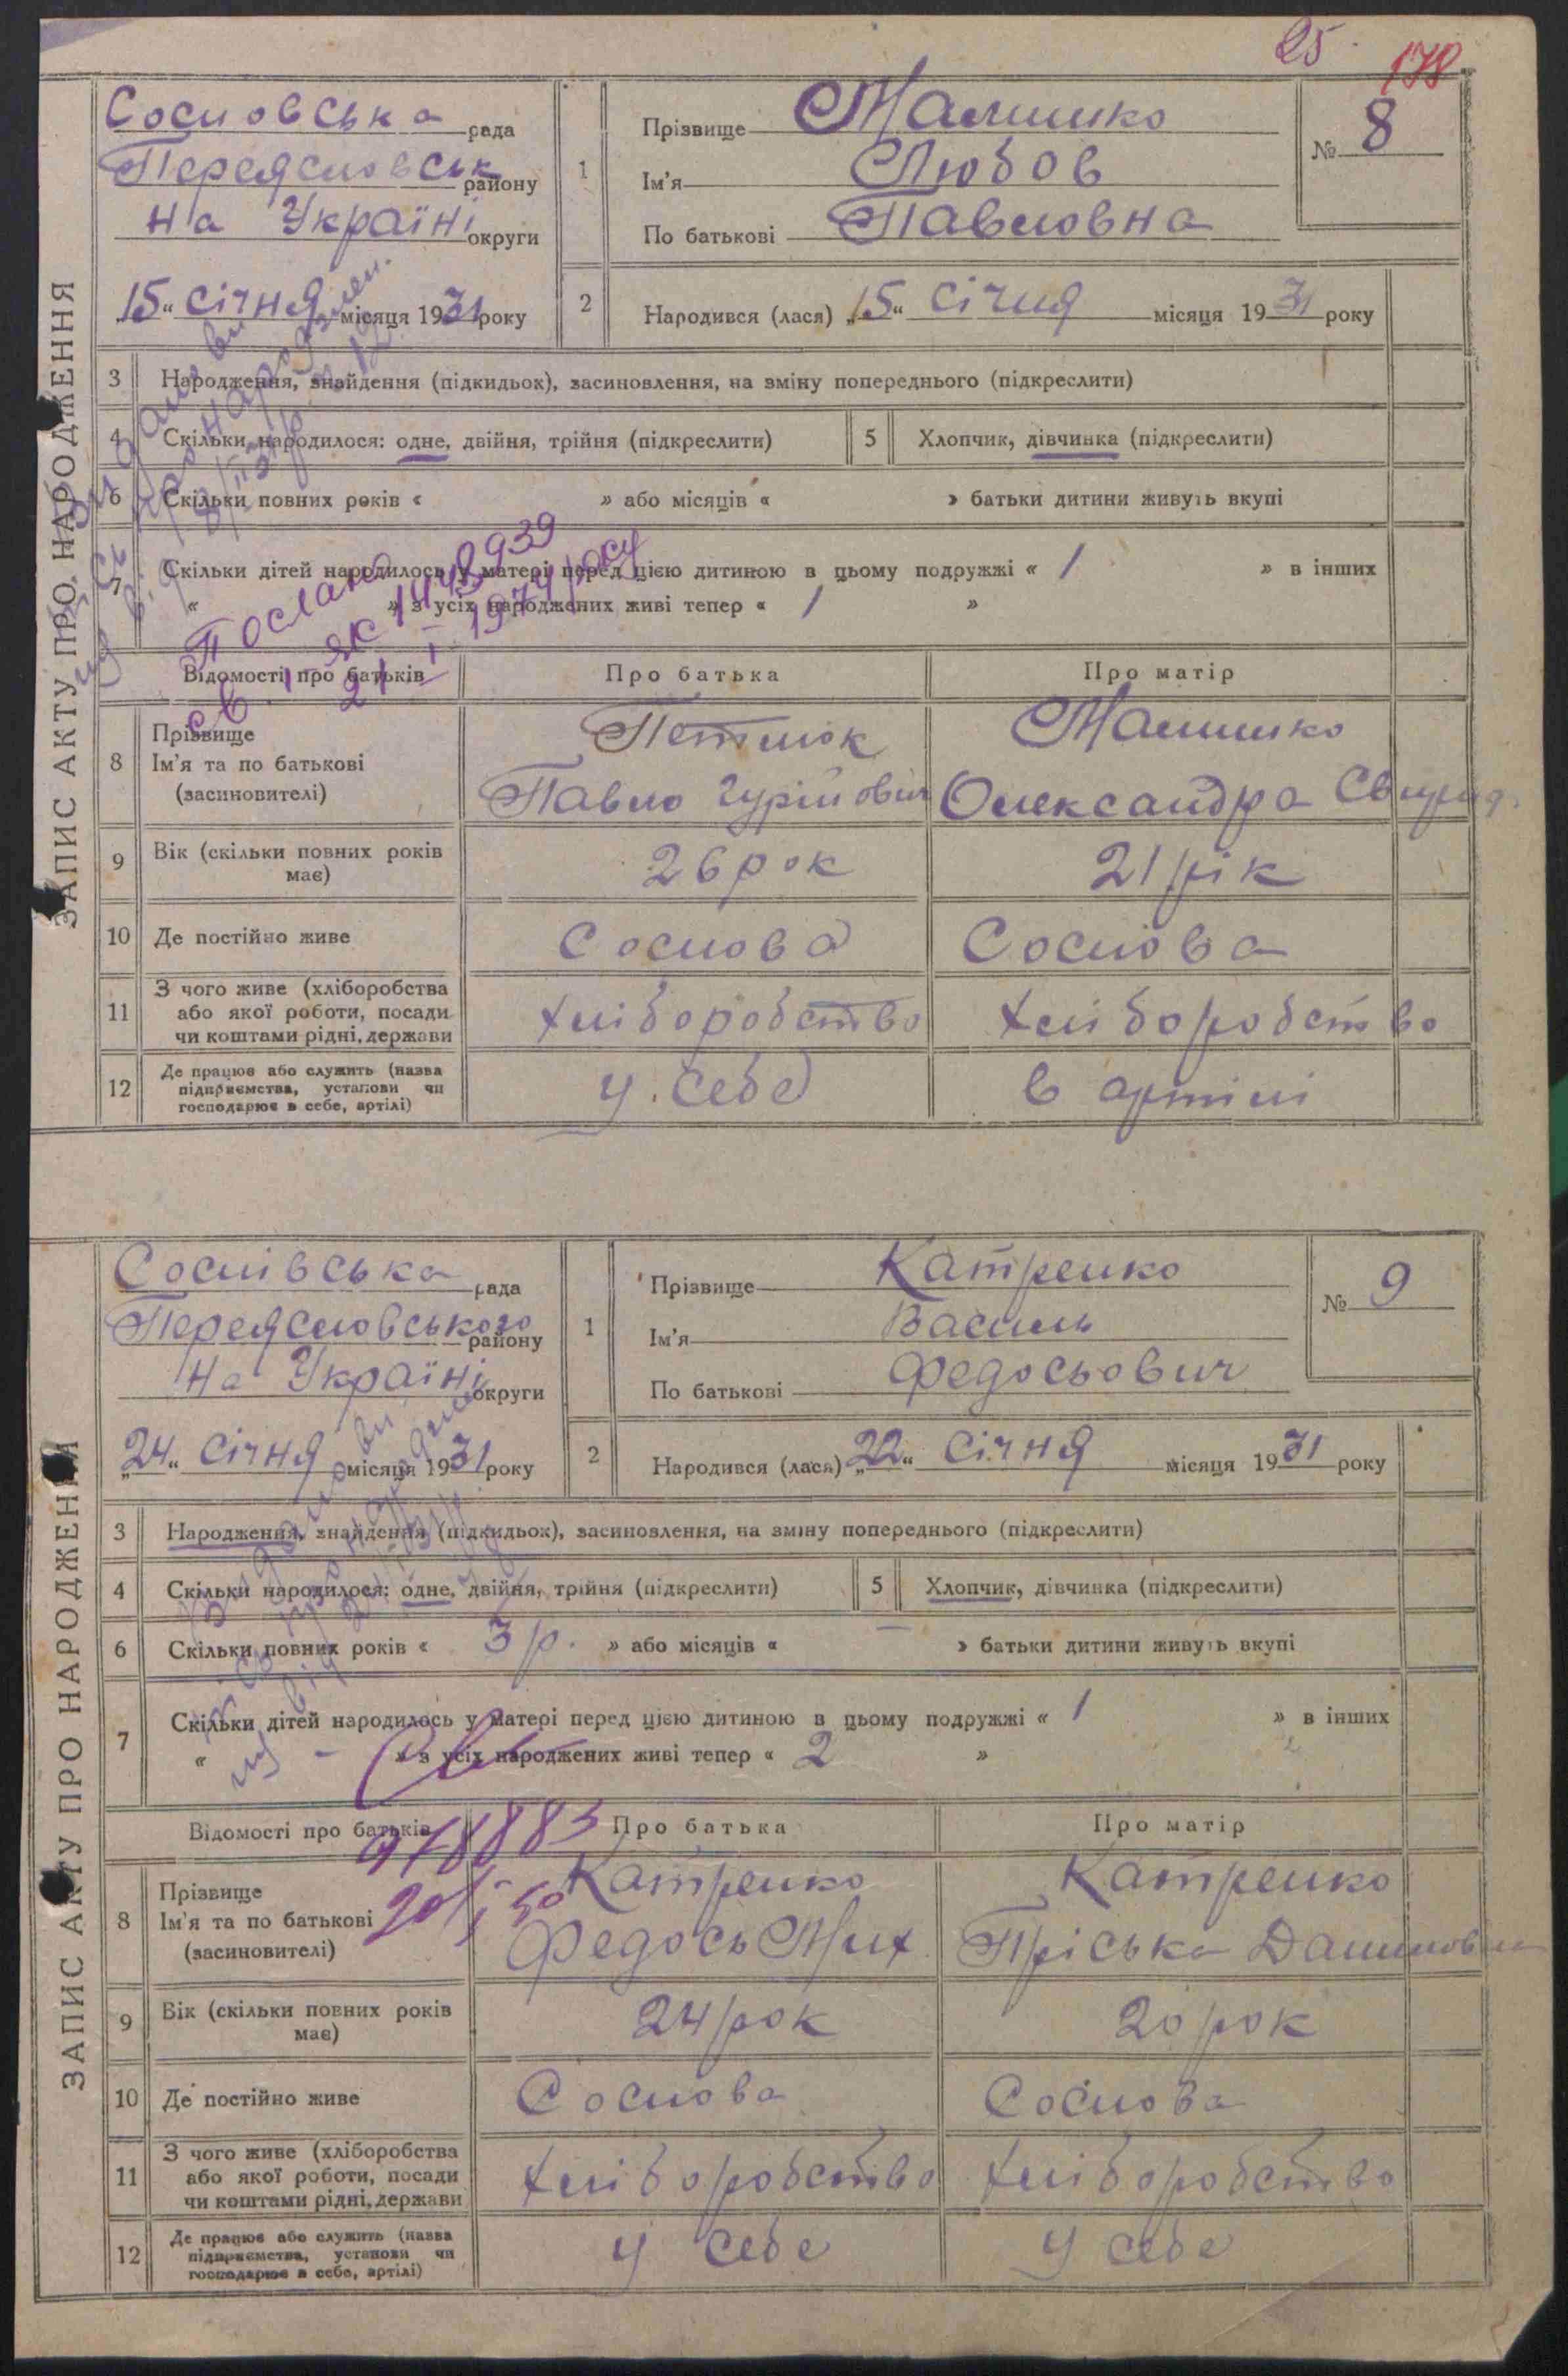 25 178
ЗАПИС АКТУ ПРО НАРОДЖЕННЯ
Сосновська рада
Переясловськ району
на Україні округи
„15“ січня місяця 1931 року
1
Прізвище Малишко
Ім'я Любов
По батькові Павловна
№ 8
2 Народився (лася) „15“ січня місяця 1931 року
3 Народження, знайдення (підкидьок), засиновлення, на зміну попереднього (підкреслити)
4 Скільки народилося: одне, двійня, трійня (підкреслити) 5 Хлопчик, дівчинка (підкреслити)
6 Скільки повних років « » або місяців « » батьки дитини живуть вкупі
7 Скільки дітей народилось у матері перед цією дитиною в цьому подружжі « 1 » в інших
« » з усіх народжених живі тепер « 1 »
Послано
св. І-ЯК 1448939
21 І 1974 року
Відомості про батьків Про батька Про матір
8 Прізвище
Ім'я та по батькові
(засиновителі)
Петлюк Малишко
Павло Гурійович Олександра Свирид.
9 Вік (скільки повних років має) 26 рок 21 рік
10 Де постійно живе Соснова Соснова
11 З чого живе (хліборобства
або якої роботи, посади
чи коштами рідні, держави
хліборобство хліборобство
12 Де працює або служить (назва
підприємства, установи чи
господарює в себе, артілі)
у себе в артілі
ЗАПИС АКТУ ПРО НАРОДЖЕННЯ
Соснівська рада
Переясловського району
на Україні округи
„24“ січня місяця 1931 року
1
Прізвище Катренко
Ім'я Василь
По батькові Федосьович
№ 9
2 Народився (лася) „22“ січня місяця 1931 року
3 Народження, знайдення (підкидьок), засиновлення, на зміну попереднього (підкреслити)
4 Скільки народилося: одне, двійня, трійня (підкреслити) 5 Хлопчик, дівчинка (підкреслити)
6 Скільки повних років « 3 р. » або місяців « — » батьки дитини живуть вкупі
7 Скільки дітей народилось у матері перед цією дитиною в цьому подружжі « 1 » в інших
« — » з усіх народжених живі тепер « 2 »
Відомості про батьків Про батька Про матір
8 Прізвище
Ім'я та по батькові
(засиновителі)
Катренко Катренко
Федось Мих. Пріська Даниловна
9 Вік (скільки повних років має) 24 рок 20 рок
10 Де постійно живе Соснова Соснова
11 З чого живе (хліборобства
або якої роботи, посади
чи коштами рідні, держави
хліборобство хліборобство
12 Де працює або служить (назва
підприємства, установи чи
господарює в себе, артілі)
у себе у себе